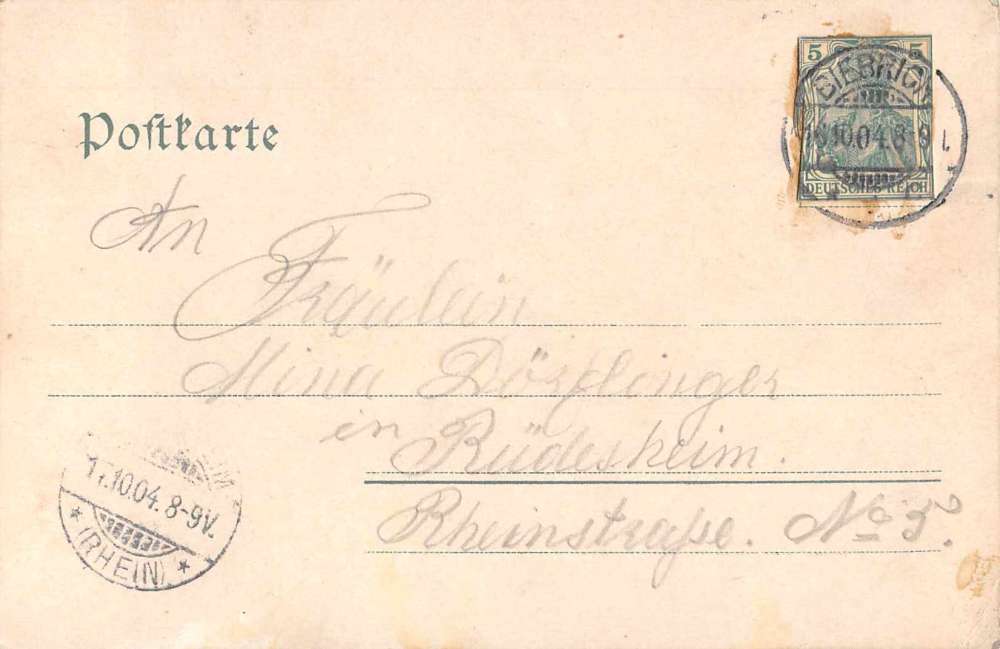 5 5
BIEBRICH
16.10.04.8-9
DEUTSCHES REICH
Poſtkarte
An
Fräulein
Mina Dörflinger
in Rüdesheim.
Rheinstraße. No 5.
17.10.04.8-9V.
* (RHEIN) *